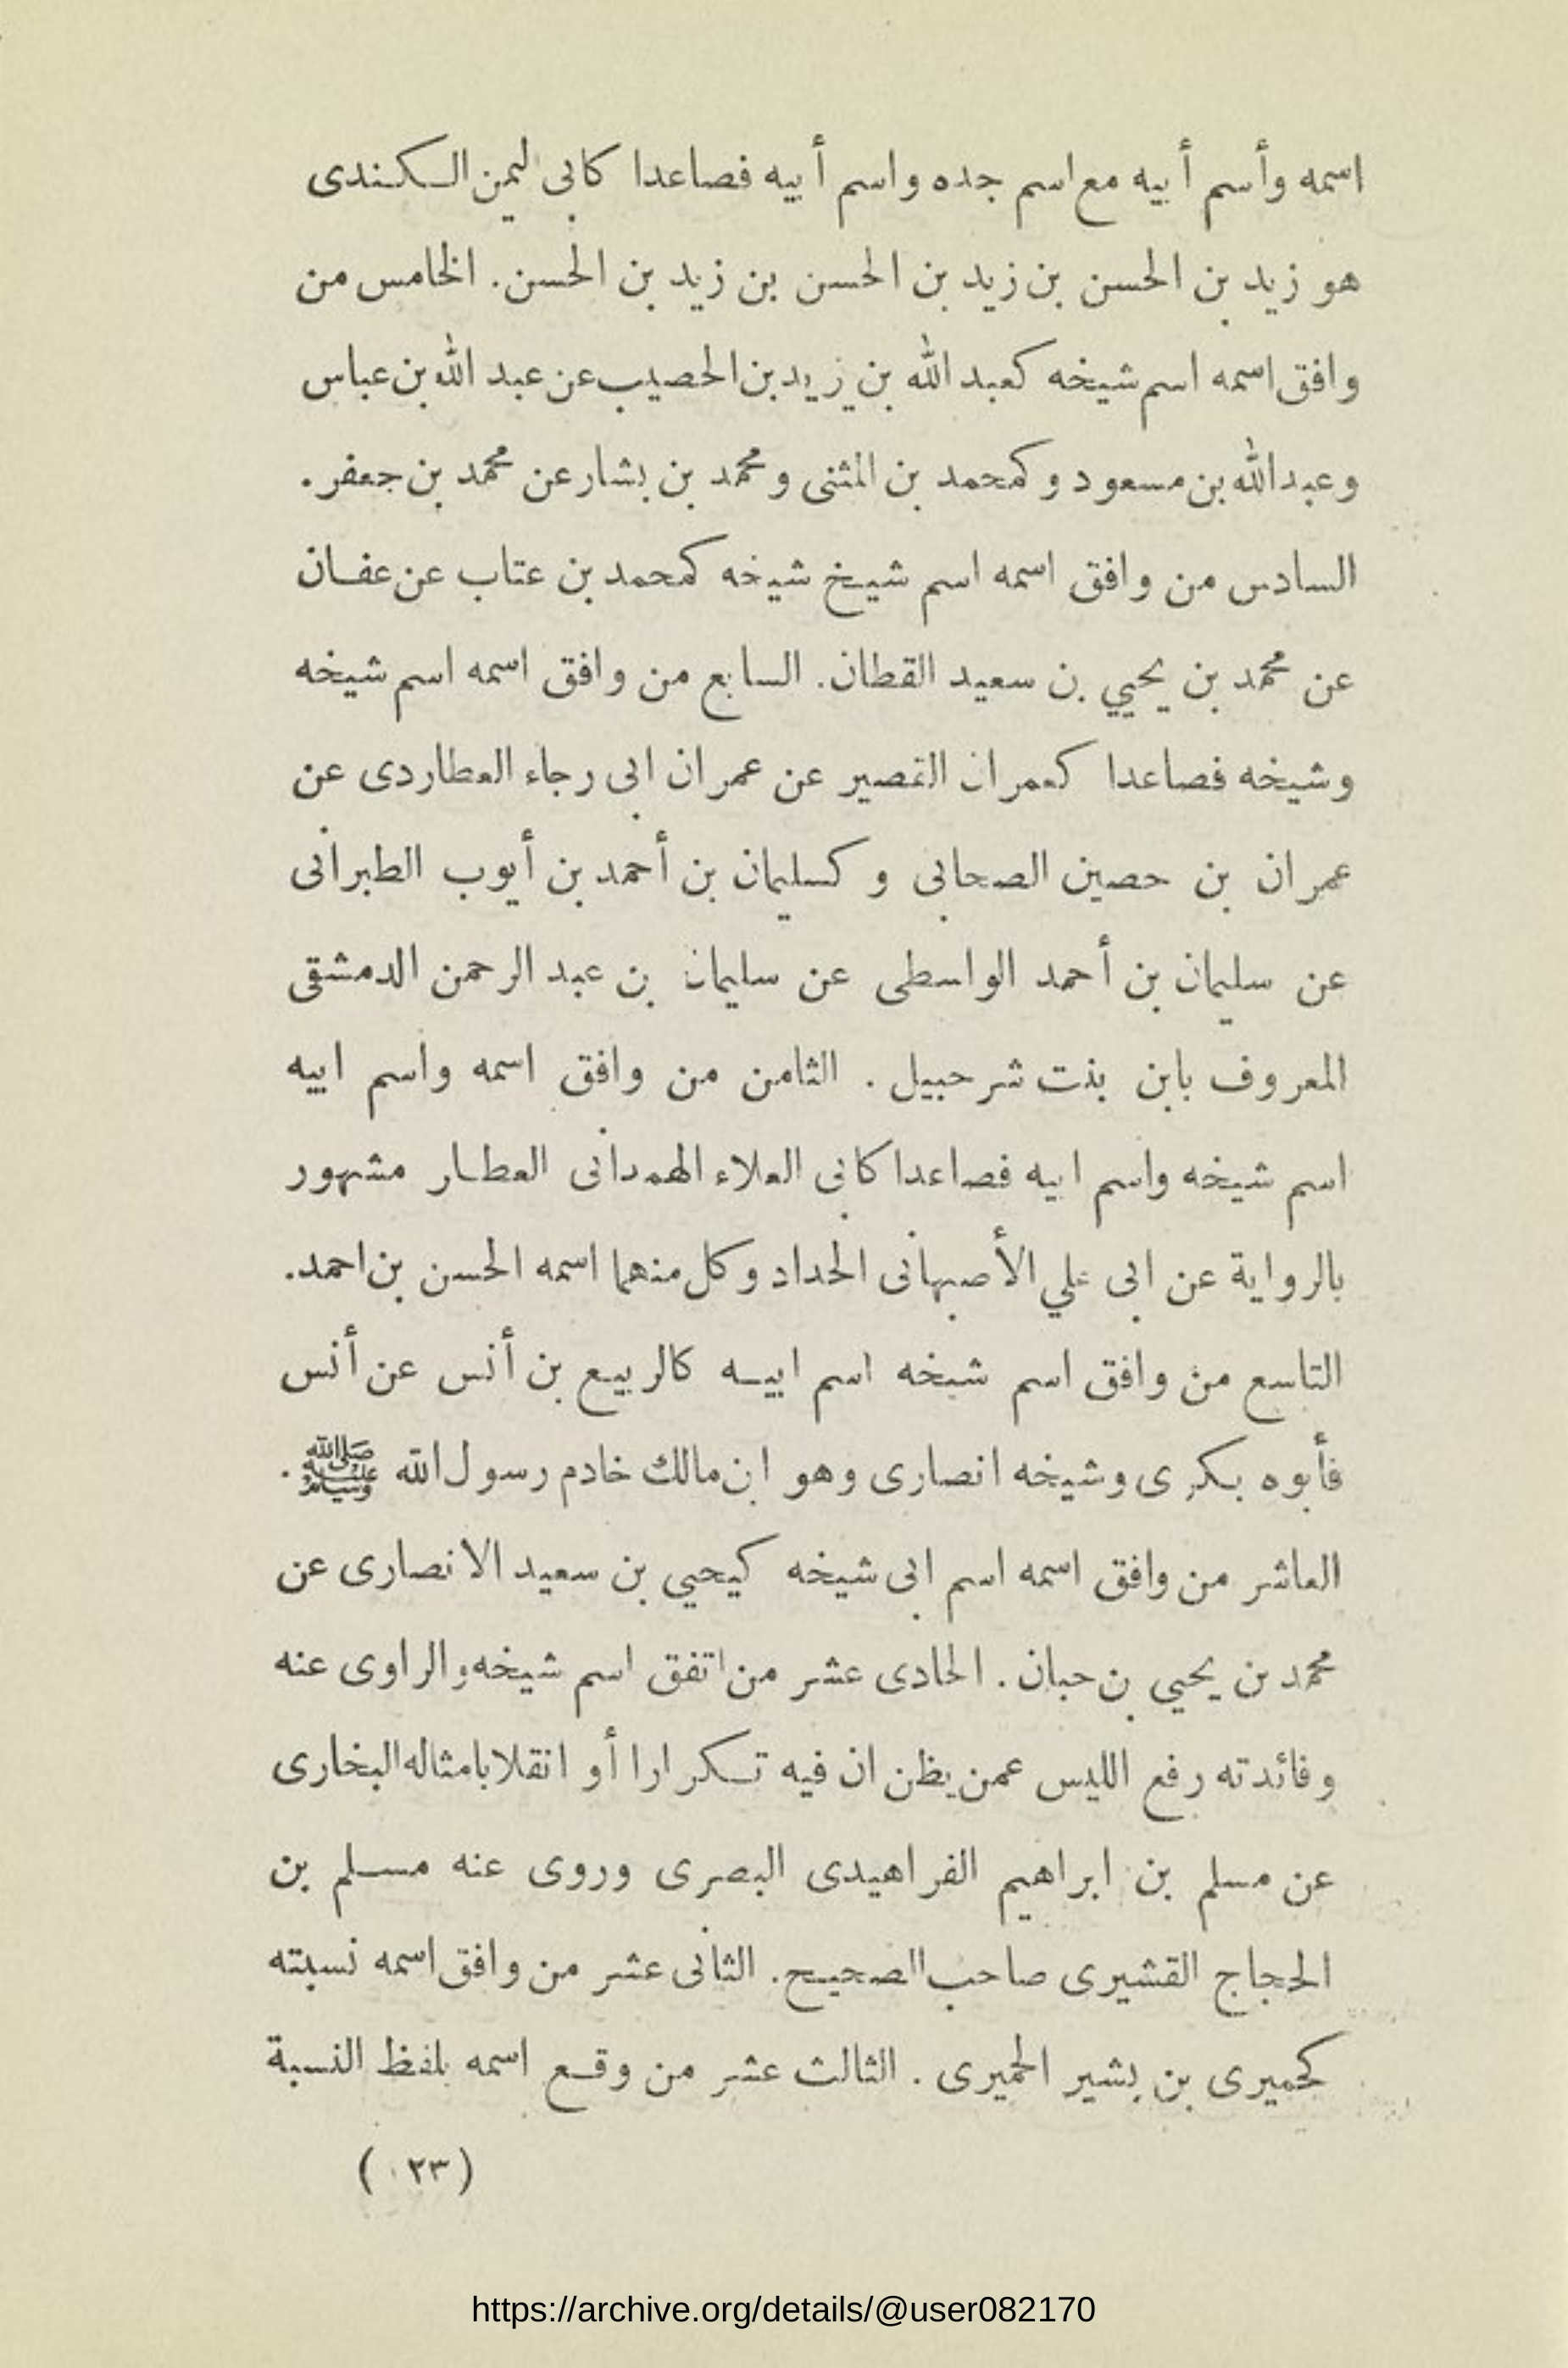 اسمه وأسم أبيه مع اسم جده واسم أبيه فصاعدا كابى ليمن الكندى
هو زيد بن الحسن بن زيد بن الحسن بن زيد بن الحسن. الخامس من
وافق اسمه اسم شيخه كعبد الله بن زيد بن الحصيب عن عبد الله بن عباس
وعبد الله بن مسعود وكمحمد بن المثنى ومحمد بن بشار عن محمد بن جعفر.
السادس من وافق اسمه اسم شيخ شيخه كمحمد بن عتاب عن عفان
عن محمد بن يحيي بن سعيد القطان. السابع من وافق اسمه اسم شيخه
وشيخه فصاعدا كعمران القصير عن عمران ابى رجاء العطاردى عن
عمران بن حصين الصحابى وكسليمان بن أحمد بن أيوب الطبرانى
عن سليمان بن أحمد الواسطى عن سليمان بن عبد الرحمن الدمشقى
المعروف بابن بنت شرحبيل. الثامن من وافق اسمه واسم ابيه
اسم شيخه واسم ابيه فصاعدا كابى العلاء الهمدانى العطار مشهور
بالرواية عن ابى علي الأصبهانى الحداد وكل منهما اسمه الحسن بن احمد.
التاسع من وافق اسم شيخه اسم ابيه كالربيع بن أنس عن أنس
فأبوه بكرى وشيخه انصارى وهو ابن مالك خادم رسول الله ﷺ.
العاشر من وافق اسمه اسم ابى شيخه كيحيي بن سعيد الانصارى عن
محمد بن يحيي بن حبان. الحادى عشر من اتفق اسم شيخه والراوى عنه
وفائدته رفع اللبس عمن يظن ان فيه تكرارا أو انقلابا مثاله البخارى
عن مسلم بن ابراهيم الفراهيدى البصرى وروى عنه مسلم بن
الحجاج القشيرى صاحب الصحيح. الثانى عشر من وافق اسمه نسبته
كحميرى بن بشير الحميرى. الثالث عشر من وقع اسمه بلفظ النسبة
(٢٣)
https://archive.org/details/@user082170